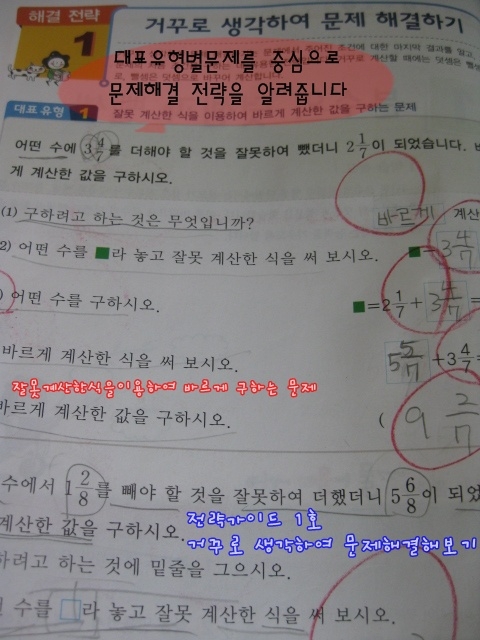 해결 전략
1
거꾸로 생각하여 문제 해결하기
대표유형별문제를 중심으로
문제해결 전략을 알려줍니다
대표 유형 1
잘못 계산한 식을 이용하여 바르게 계산한 값을 구하는 문제
어떤 수에 3 4/7를 더해야 할 것을 잘못하여 뺐더니 2 1/7이 되었습니다. 바
게 계산한 값을 구하시오.
(1) 구하려고 하는 것은 무엇입니까?
바르게 계산
2) 어떤 수를 ■라 놓고 잘못 계산한 식을 써 보시오.
■-3 4/7
) 어떤 수를 구하시오.
■=2 1/7+3 4/7=
바르게 계산한 식을 써 보시오.
5 5/7+3 4/7=
잘못계산한식을이용하여 바르게 구하는 문제
바르게 계산한 값을 구하시오.
( 9 2/7
수에서 1 2/8를 빼야 할 것을 잘못하여 더했더니 5 6/8이 되었
계산한 값을 구하시오.
전략가이드 1호
거꾸로 생각하여 문제해결해보기
하려고 하는 것에 밑줄을 그으시오.
수를 □라 놓고 잘못 계산한 식을 써 보시오.